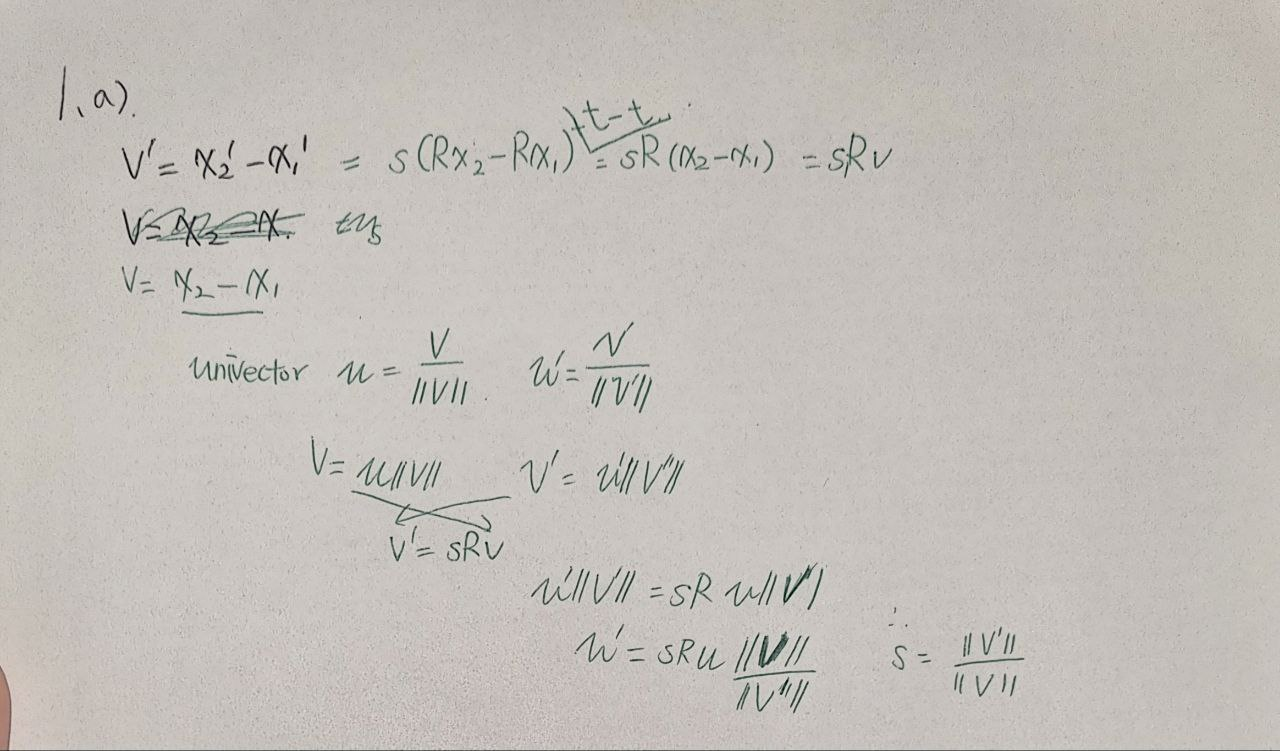 1. a).
V' = x₂' - x₁' = s(Rx₂ - Rx₁) + t - t = sR(x₂ - x₁) = sRv
V = x₂ - x₁
univector u = V / ||V|| u' = V' / ||V'||
V = u||V|| V' = u'||V'||
V' = sRv
u'||V'|| = sR u||V||
u' = sRu ||V|| / ||V'|| ∴ s = ||V'|| / ||V||